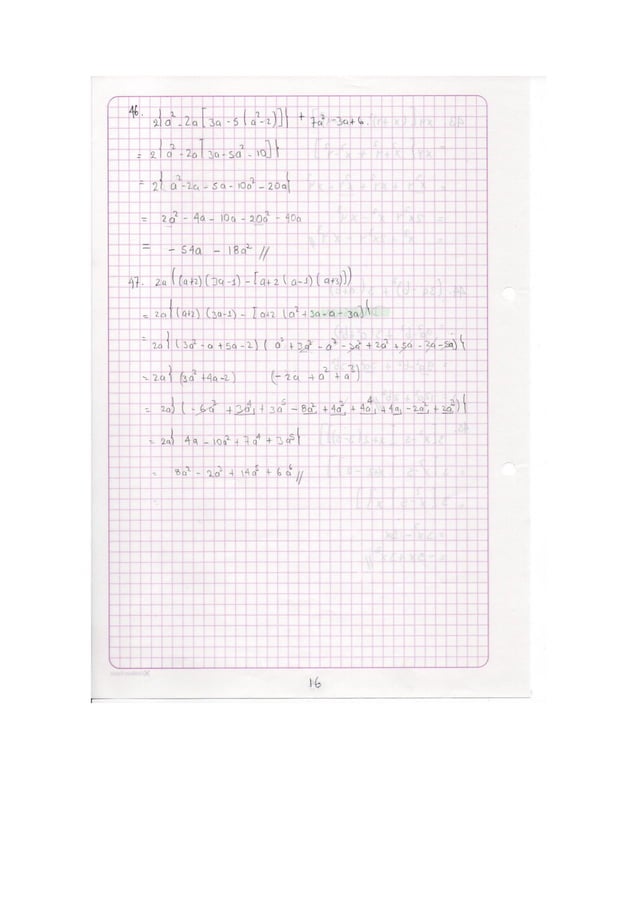 46. 2{a² - 2a[3a - 5(a² - 2)]} + 7a² - 3a + 6.
= 2{a² - 2a[3a - 5a² - 10]}
= 2{a² - 2a - 5a - 10a² - 20a}
= 2a² - 4a - 10a - 20a² - 40a
= - 54a - 18a² //
47. 2a{(a+2)(3a-1) - [a+2(a-1)(a+3)]}
= 2a{(a+2)(3a-1) - [a+2(a² + 3a - a - 3a]}
= 2a{(3a² - a + 5a - 2)(a² + 3a² - a² - 3a² + 2a² + 5a - 3a - 5a)}
= 2a{(3a² + 4a - 2) (- 2a + a² + a³)
= 2a)(- 6a³ + 3a⁴ + 3a⁵ - 8a² + 4a³ + 4a⁴ + 4a - 2a² + 2a³)}
= 2a{4a - 10a² + 7a⁴ + 3a⁵}
= 8a² - 2a² + 14a⁵ + 6a⁶ //
16